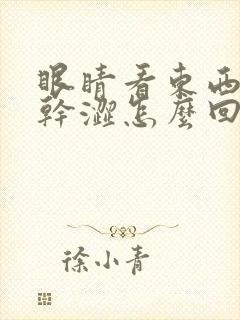 眼睛看東西
幹澀怎麼回
徐小青